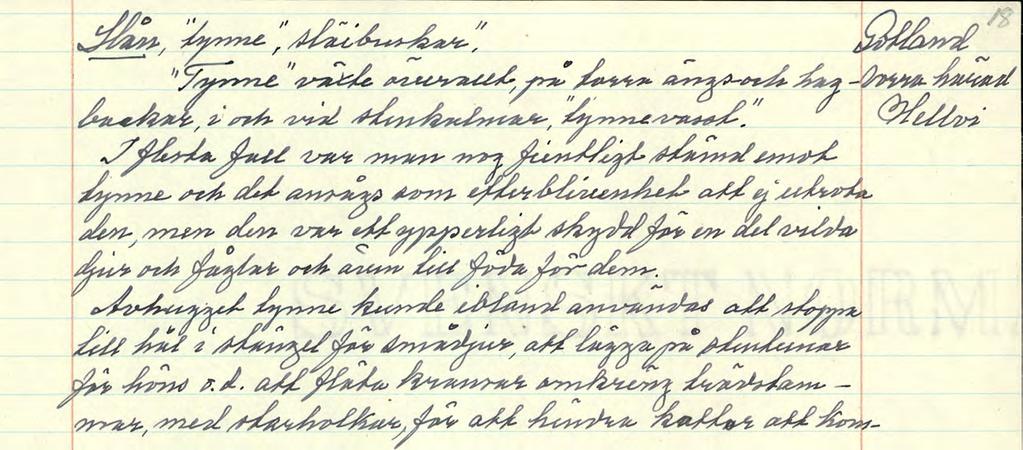 18
Slån, "tynne", släibuskar".
Gotland
"Tynne" växte överallt, på torra ängs- och hag-
Norra härad
backar, i och vid stenkalmar, "tynnevasot".
Hellvi
I flesta fall var man nog fientligt stämd emot
tynne och det ansågs som efterblivenhet att ej utrota
den, men den var ett ypperligt skydd för en del vilda
djur och fåglar och även till föda för dem.
Avhugget tynne kunde ibland användas att stoppa
till hål i stängel för smådjur, att lägga på stentunar
för höns o.d. att fläta kransar omkring trädstam-
mar, med starholkar, för att hindra kattor att kom-